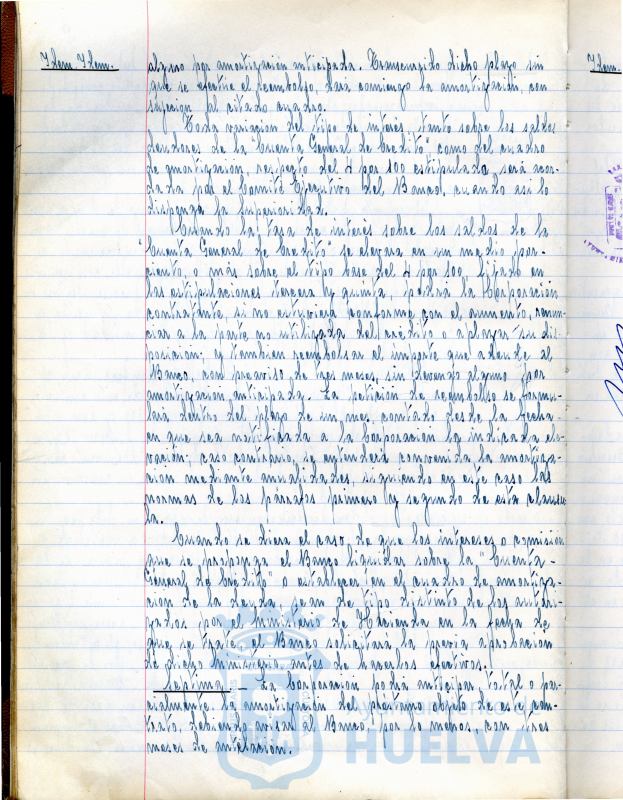 Idem. Idem.
alguno por amortización anticipada. Transcurrido dicho plazo sin
que se efectúe el reembolso, dará comienzo la amortización, con
sujeción al citado cuadro.
Toda variación del tipo de interés, tanto sobre los saldos
deudores de la "Cuenta General de Crédito" como del cuadro
de amortización, respecto del 4 por 100 estipulado, será acor-
dada por el Comité Ejecutivo del Banco, cuando así lo
disponga la Superioridad.
Cuando la tasa de interés sobre los saldos de la
"Cuenta General de Crédito" se elevara en un medio por-
ciento, o más sobre el tipo base del 4 por 100, fijado en
las estipulaciones tercera y quinta, podrá la Corporación
contratante, si no estuviera conforme con el aumento, renun-
ciar a la parte no utilizada del crédito o aplazar su dis-
posición; y también reembolsar el importe que adeude al
Banco, con preaviso de tres meses, sin devengo alguno por
amortización anticipada. La petición de reembolso se formu-
lará dentro del plazo de un mes, contado desde la fecha
en que sea notificada a la Corporación la indicada ele-
vación; caso contrario, se entenderá convenida la amortiza-
ción mediante anualidades, siguiendo en este caso las
normas de los párrafos primero y segundo de esta cláusu-
la.
Cuando se diera el caso de que los intereses o comisión
que se proponga el Banco liquidar sobre la "Cuenta-
General de Crédito" o establecer en el cuadro de amortiza-
ción de la deuda, sean de tipo distinto de los autori-
zados por el Ministerio de Hacienda en la fecha de
que se trate, el Banco solicitará la previa aprobación
de dicho Ministerio, antes de hacerlos efectivos.
Séptima - La Corporación podrá anticipar total o par-
cialmente la amortización del préstamo objeto de este con-
trato, debiendo avisar al Banco, por lo menos, con tres
meses de antelación.
Idem.
Ayuntamiento de
HUELVA